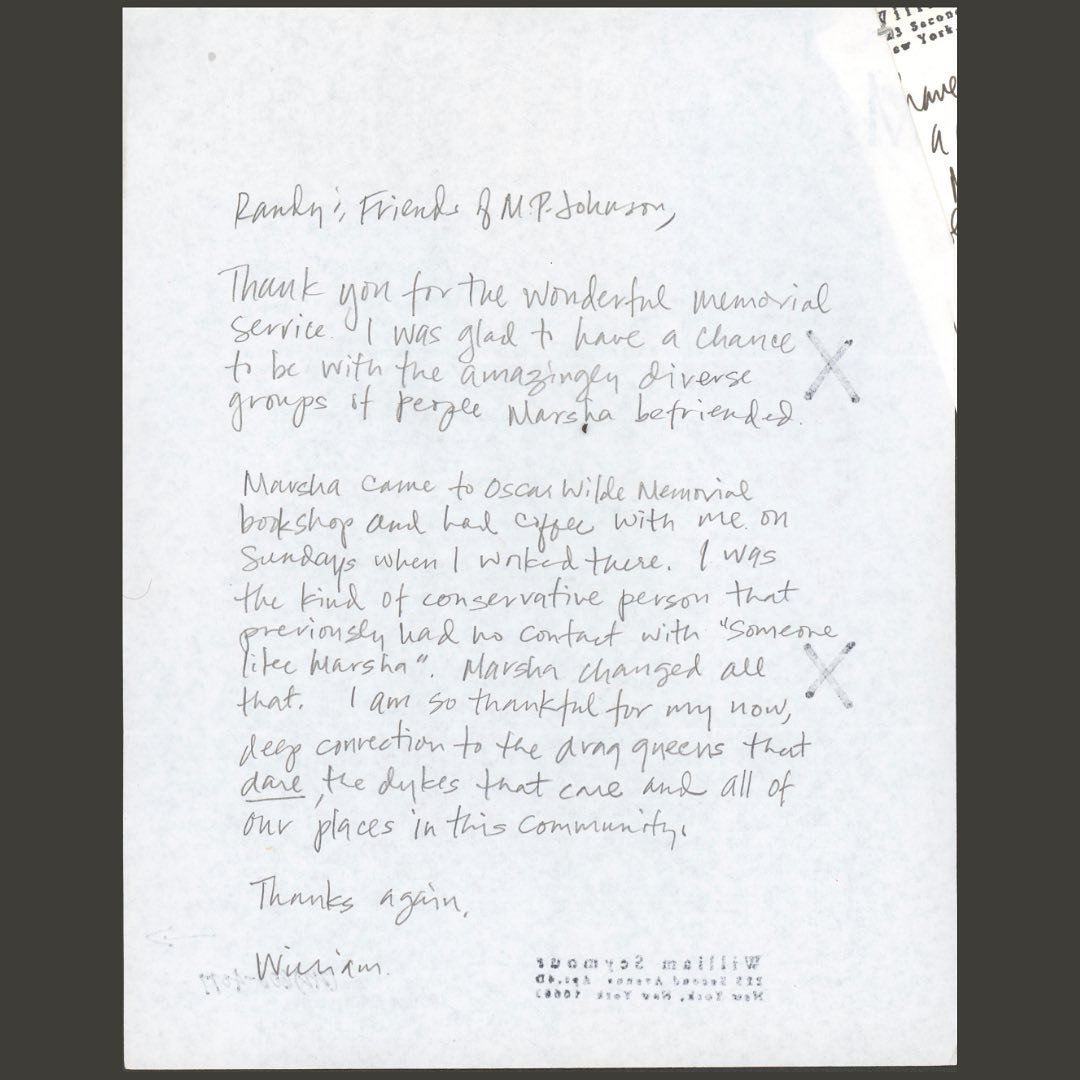 Randy & Friends of M.P. Johnson,
Thank you for the wonderful memorial
service. I was glad to have a chance
to be with the amazingly diverse
groups of people Marsha befriended.
Marsha came to Oscar Wilde Memorial
bookshop and had coffee with me on
Sundays when I worked there. I was
the kind of conservative person that
previously had no contact with "someone
like Marsha". Marsha changed all
that. I am so thankful for my now,
deep connection to the drag queens that
dare, the dykes that care and all of
our places in this community.
Thanks again,
William.
William Seymour
Second Avenue, Apt. 4D
New York, New York
have
a